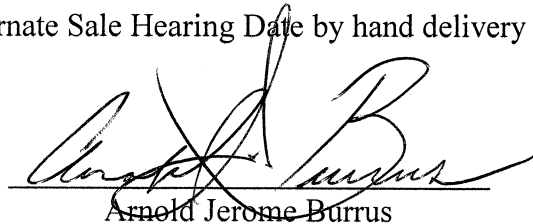 rnate Sale Hearing Date by hand delivery
Arnold J. Burrus
Arnold Jerome Burrus